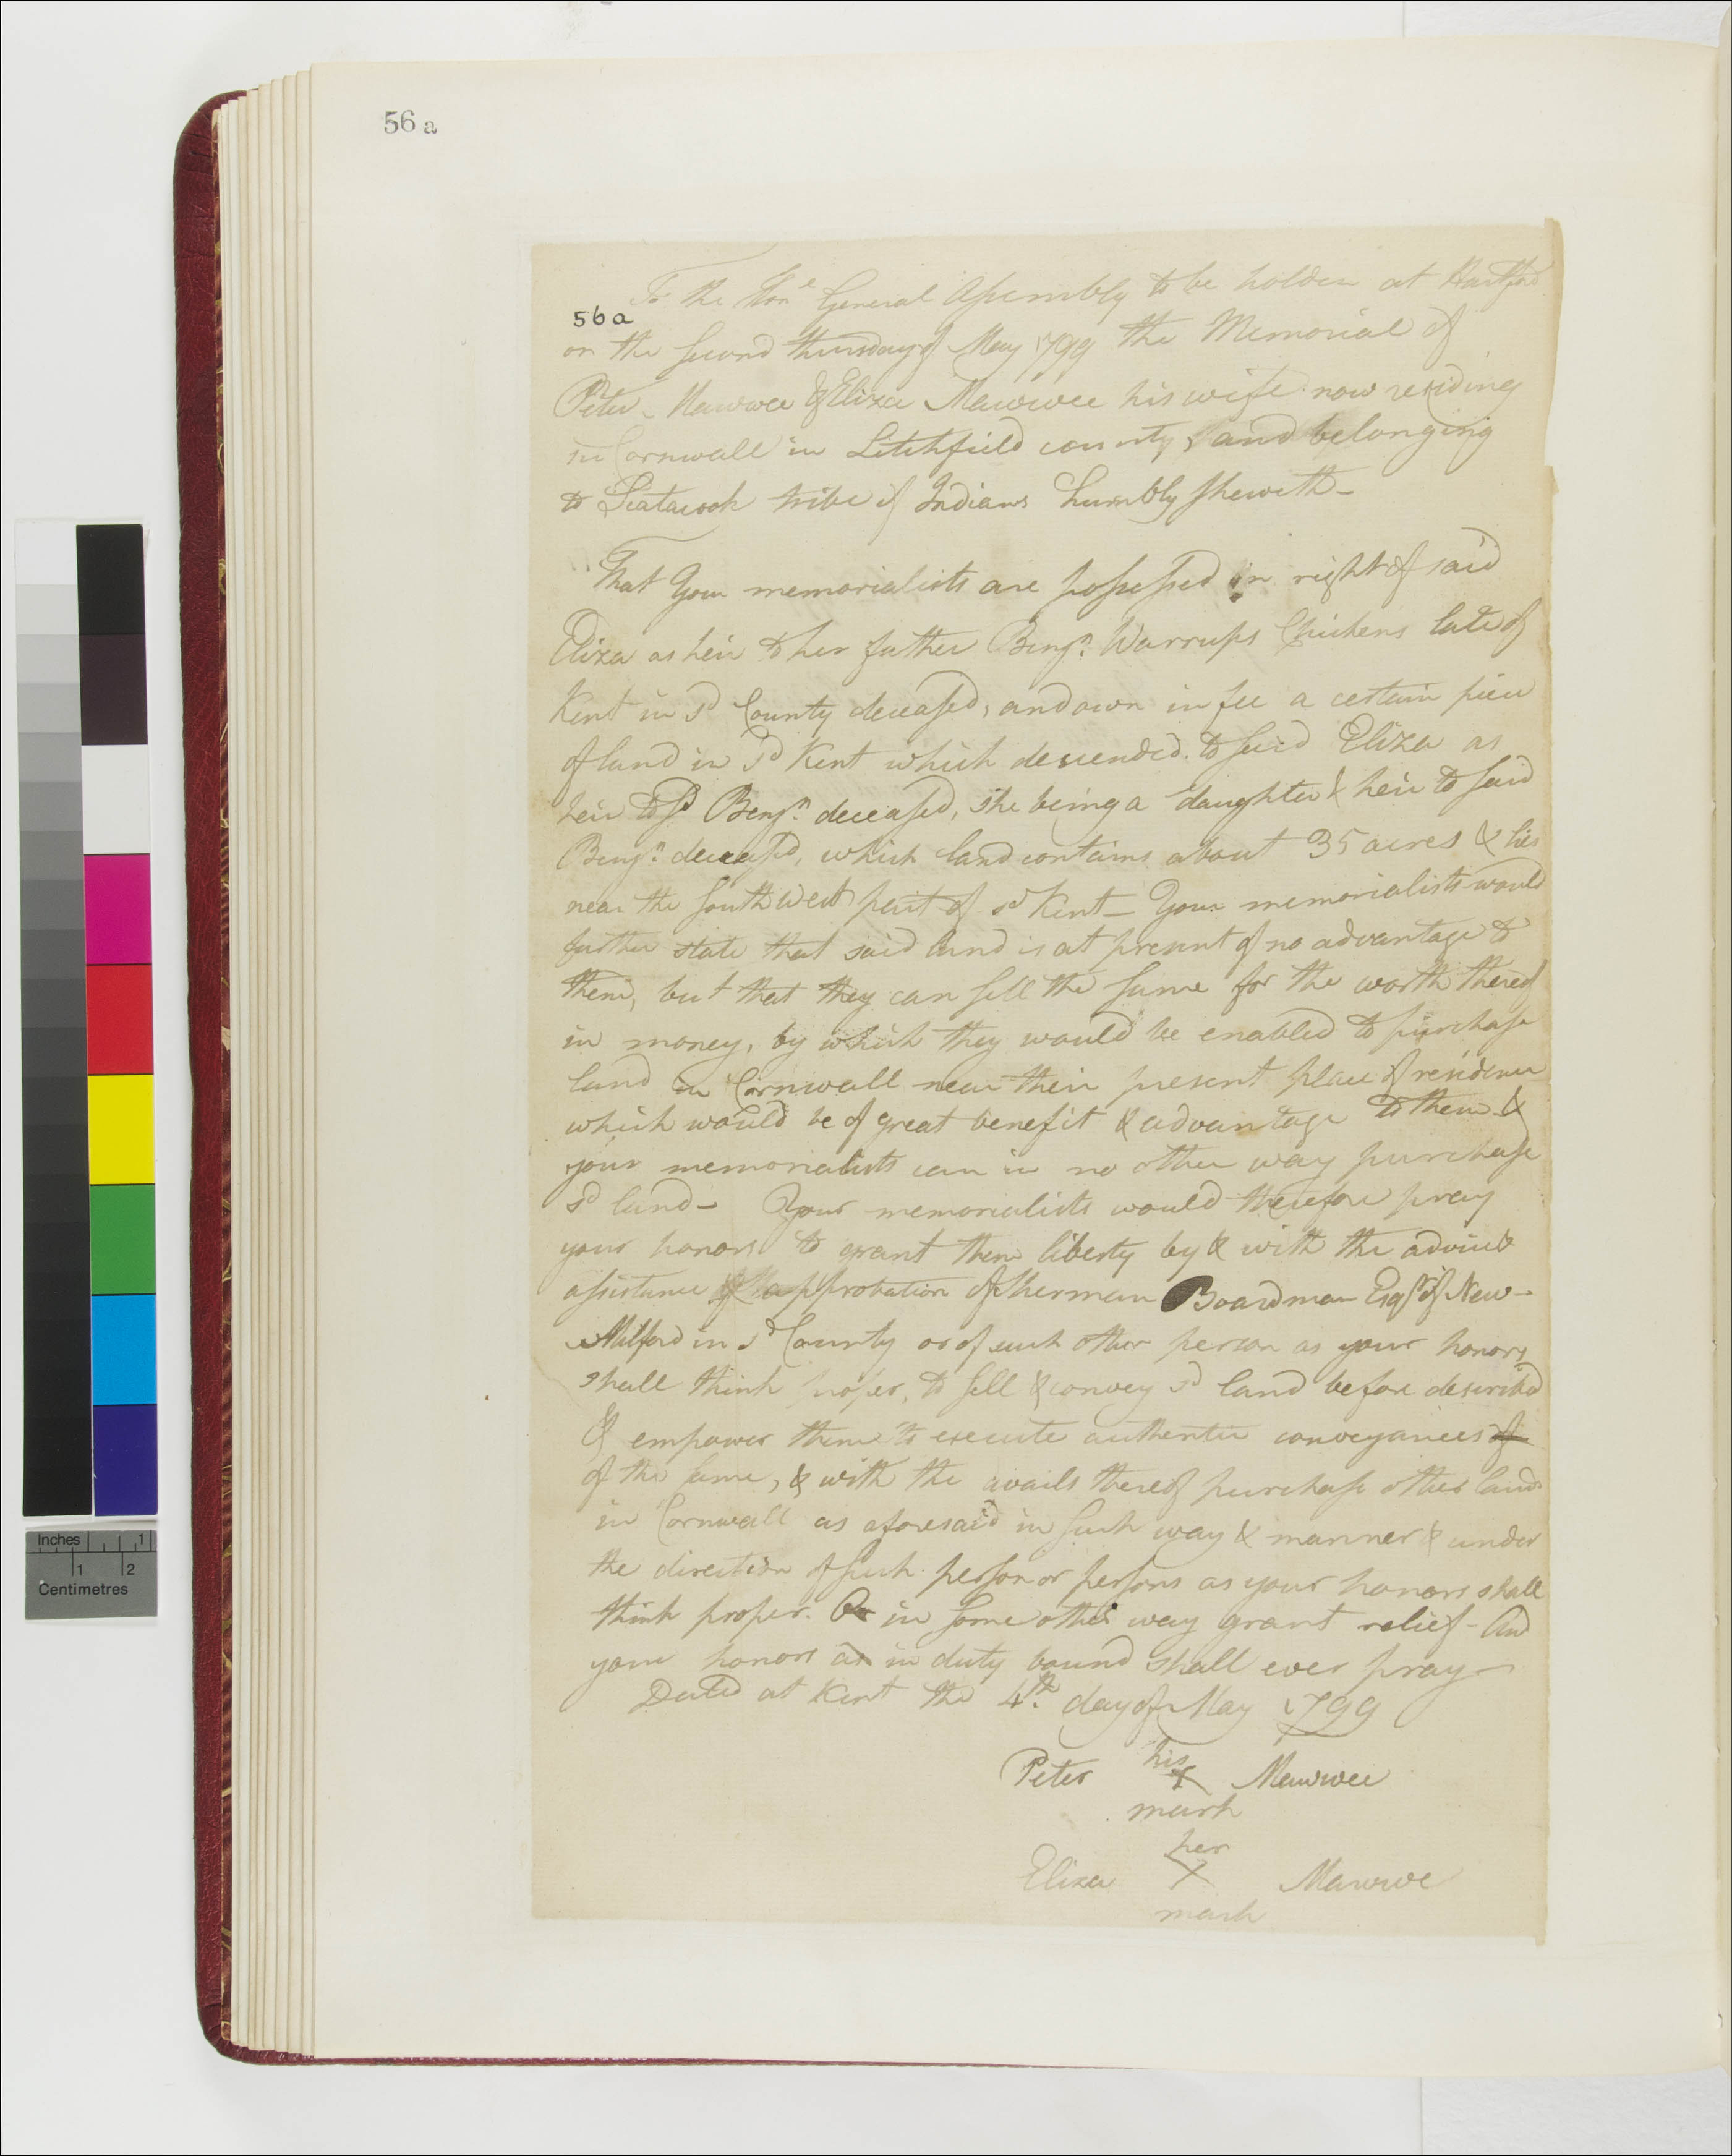 56 a
To the Hon.e General Assembly to be holden at Hartford
56a
on the second thursday of May 1799 the Memorial of
Peter Mawwee & Eliza Mawwee his wife now residing
in Cornwall in Litchfield county, and belonging
to Scatacook tribe of Indians humbly sheweth -
That Your memorialists are possessed in right of said
Eliza as heir to her father Benjn. Warrups Chickens late of
Kent in sd County deceased, and own in fee a certain piece
of land in sd Kent which descended to said Eliza as
heir to sd Benjn. deceased, she being a daughter & heir to said
Benjn. deceased, which land contains about 35 acres & lies
near the southwest part of sd Kent - Your memorialists would
further state that said land is at present of no advantage to
them, but that they can sell the same for the worth thereof
in money, by which they would be enabled to purchase
land in Cornwall near their present place of residence
which would be of great benefit & advantage to them &
your memorialists can in no other way purchase
sd land - Your memorialists would therefore pray
your honors to grant them liberty by & with the advice &
assistance & approbation of Sherman Boardman Esqr of New-
Milford in sd County or of such other person as your honors
shall think proper, to sell & convey sd land before described
& empower them to execute authentic conveyances of
of the same, & with the avails thereof purchase other land
in Cornwall as aforesaid in such way & manner & under
the direction of such person or persons as your honors shall
think proper. Or in some other way grant relief - And
your honors as in duty bound shall ever pray -
Dated at Kent the 4th. day of May 1799
his
Peter X Mawwee
mark
her
Eliza X Mawwe
mark
Inches 1
1 2
Centimetres